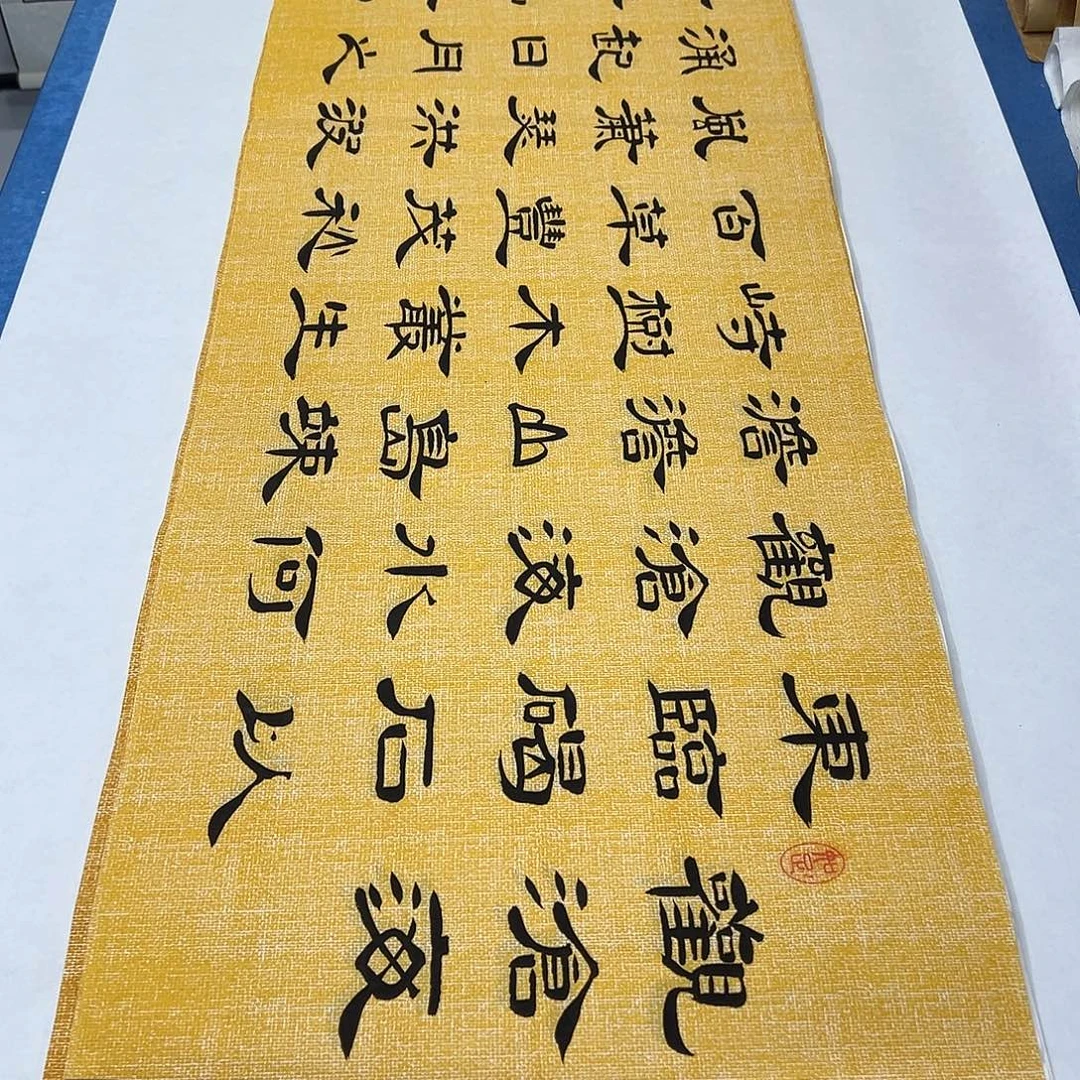 觀滄海
東臨碣石以
觀滄海水何
澹澹山島竦
峙樹木叢生
百草豐茂秋
風蕭瑟洪波
涌起日月之